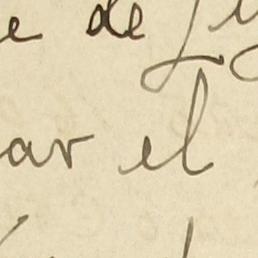 e de
ar el